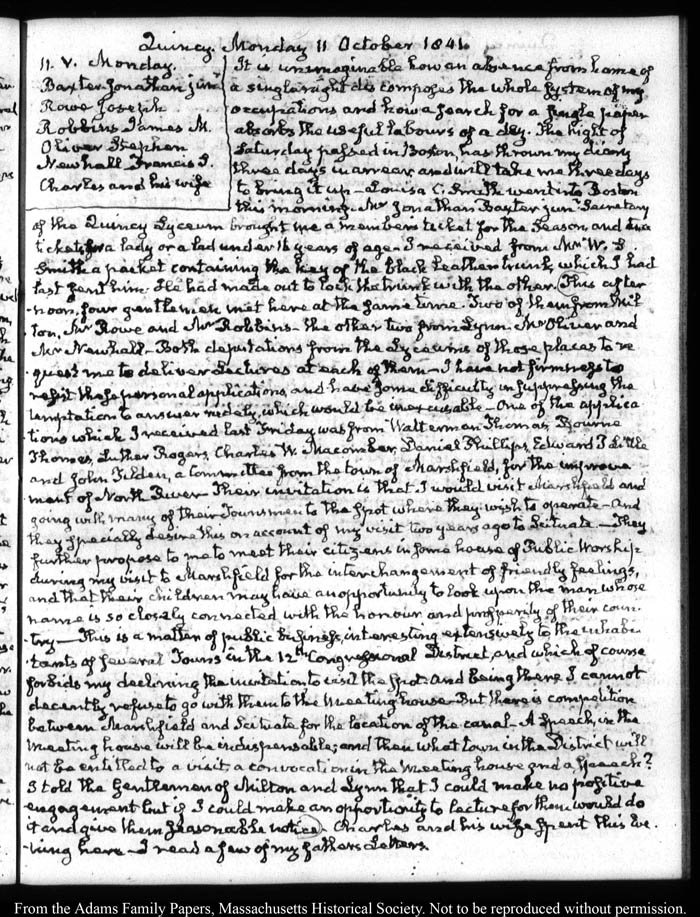 Quincy. Monday 11 October 1841.
11. V. Monday.
Baxter Jonathan junr
Rowe Joseph
Robbins James M.
Oliver Stephen
Newhall Francis S.
Charles and his wife
It is unimaginable how an absence from home of
a single night discomposes the whole system of my
occupations and how a search for a single paper
absorbs the useful labours of a day. The night of
Saturday passed in Boston, has thrown my diary
three days in arrear and will take me three days
to bring it up – Louisa C. Smith went into Boston
this morning. Mr Jonathan Baxter junr Secretary
of the Quincy Lyceum brought me a members ticket for the Season, and two
tickets for a lady or a lad under 16 years of age. I received from Mr W. S.
Smith a packet containing the key of the black leather trunk, which I had
last sent him. He had made out to lock the trunk with the other. This after
noon, four gentlemen met here at the same time. Two of them from Mil
ton, Mr Rowe and Mr Robbins – the other two from Lynn. Mr Oliver and
Mr Newhall – Both deputations from the Lyceums of those places to re
quest me to deliver Lectures at each of them – I have not firmness to
resist these personal applications, and have some difficulty in suppressing the
temptation to answer rudely, which would be inexcusable – One of the applica
tions which I received last Friday was from Waterman Thomas, Bourne
Thomas, Luther Rogers, Charles W. Macomber, Daniel Phillips, Edward P. Little
and John Tilden, a Committee from the town of Marshfield, for the improve
ment of North River – Their invitation is that I would visit Marshfield and
going with many of their Townsmen to the spot where they wish to operate – and
they specially desire this on account of my visit two years ago to Scituate – They
further propose to me to meet their citizens in some house of Public Worship
during my visit to Marshfield for the interchangement of friendly feelings,
and that their children may have an opportunity to look upon the man whose
name is so closely connected with the honour and prosperity of their coun
try – This is a matter of public business, interesting extensively to the inhabi
tants of several Towns in the 12th Congressional District, and which of course
forbids my declining the invitation to visit the spot. And being there I cannot
decently refuse to go with them to the Meeting house – But there is competition
between Marshfield and Scituate for the location of the canal – A Speech, in the
Meeting house will be indispensable; and then what town in the District will
not be entitled to a visit, a convocation in the Meeting house and a Speech?
I told the Gentlemen of Milton and Lynn that I could make no positive
engagement but if I could make an opportunity to lecture for them would do
it and give them seasonable notice – Charles and his wife spent this Eve
ning here – I read a few of my fathers Letters.
From the Adams Family Papers, Massachusetts Historical Society. Not to be reproduced without permission.